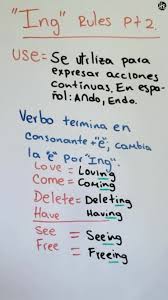 "Ing" Rules Pt 2.
USE= Se utiliza para
expresar acciones
continuas. En espa-
ñol: Ando, Endo.
Verbo termina en
consonante + "e", cambia
la "e" por "Ing".
Love = Loving
Come = Coming
Delete = Deleting
Have = Having
See = Seeing
Free = Freeing